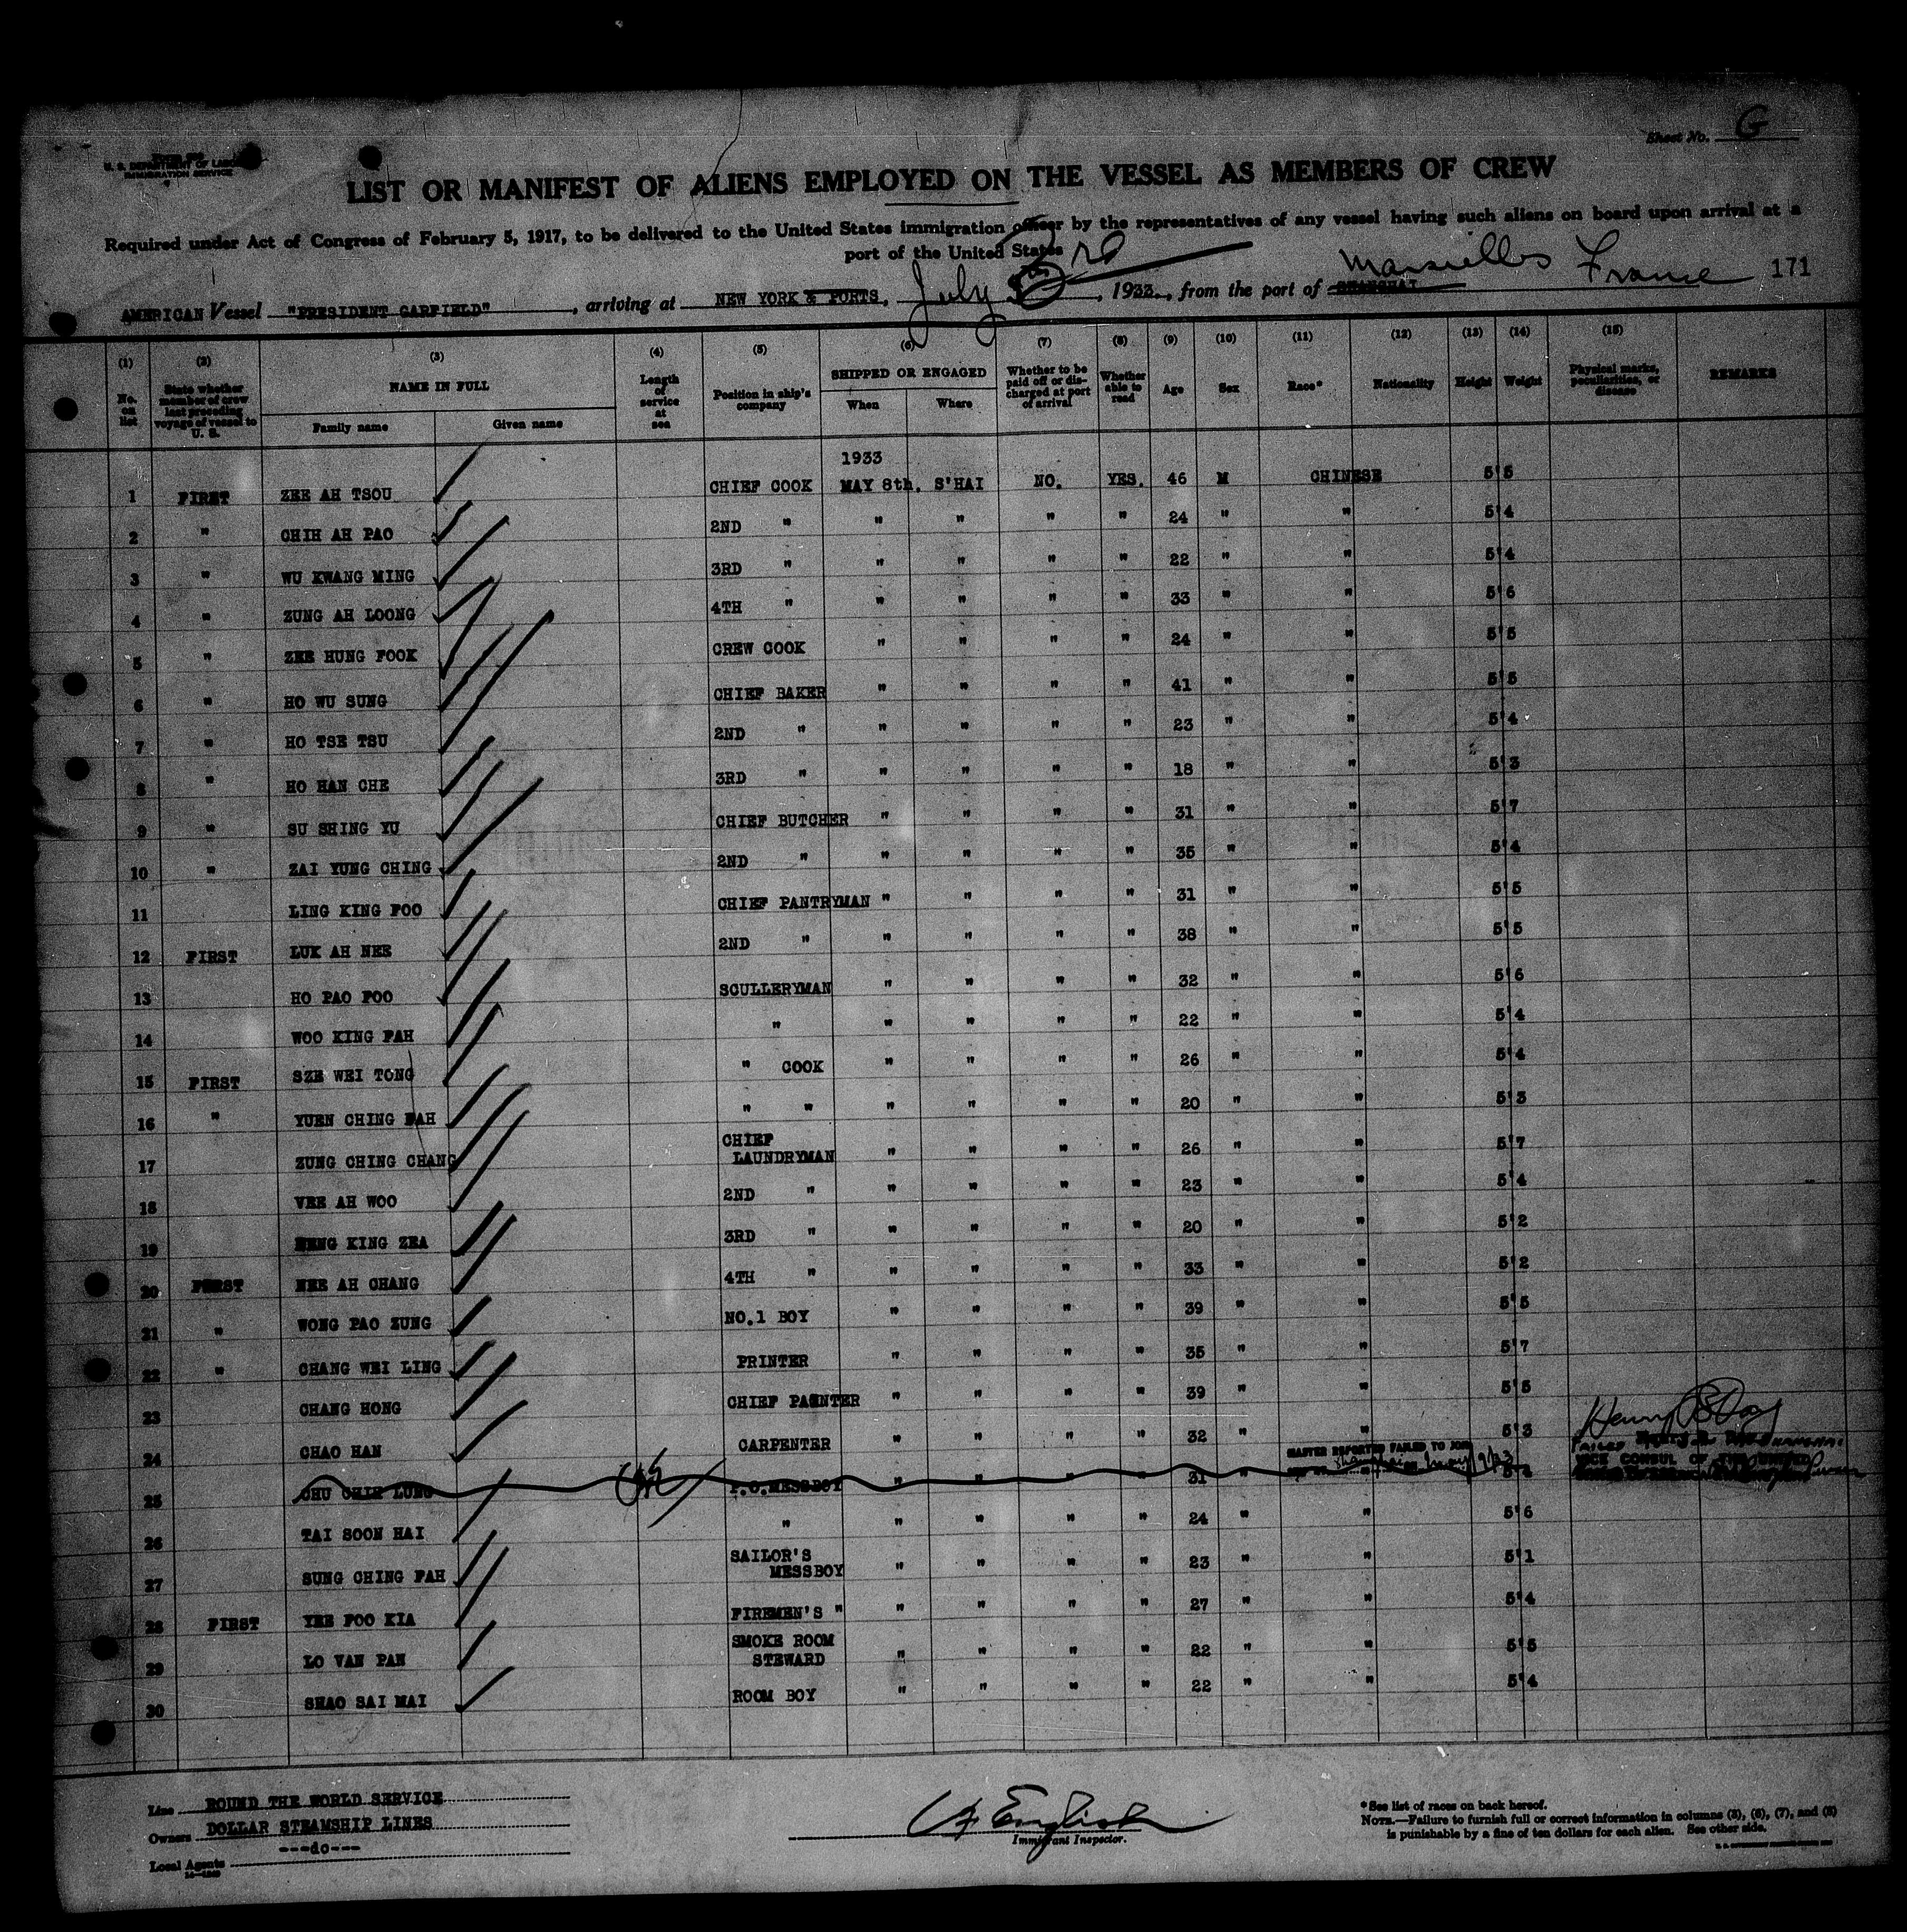 Sheet No. G
U. S. DEPARTMENT OF LABOR
IMMIGRATION SERVICE
LIST OR MANIFEST OF ALIENS EMPLOYED ON THE VESSEL AS MEMBERS OF CREW
Required under Act of Congress of February 5, 1917, to be delivered to the United States immigration officer by the representatives of any vessel having such aliens on board upon arrival at a
port of the United States
AMERICAN Vessel "PRESIDENT GARFIELD", arriving at NEW YORK & PORTS, July 3rd, 1933, from the port of SHANGHAI Marseilles France 171
(1) (2) (3) (4) (5) (6) (7) (8) (9) (10) (11) (12) (13) (14) (15)
No. on list State whether member of crew last preceding voyage of vessel to U. S. NAME IN FULL Family name Given name Length of service at sea Position in ship's company SHIPPED OR ENGAGED When Where Whether to be paid off or discharged at port of arrival Whether able to read Age Sex Race* Nationality Height Weight Physical marks, peculiarities, or disease REMARKS
1933
1 FIRST ZEE AH TSOU CHIEF COOK MAY 8th. S'HAI NO. YES. 46 M CHINESE 5'5
2 " CHIH AH PAO 2ND " " " " " 24 " " 5'4
3 " WU KWANG MING 3RD " " " " " 22 " " 5'4
4 " ZUNG AH LOONG 4TH " " " " " 33 " " 5'6
5 " ZEE HUNG FOOK CREW COOK " " " " 24 " " 5'5
6 " HO WU SUNG CHIEF BAKER " " " " 41 " " 5'5
7 " HO TSE TSU 2ND " " " " " 23 " " 5'4
8 " HO HAN CHE 3RD " " " " " 18 " " 5'3
9 " SU SHING YU CHIEF BUTCHER " " " " 31 " " 5'7
10 " ZAI YUNG CHING 2ND " " " " " 35 " " 5'4
11 LING KING FOO CHIEF PANTRYMAN " " " " 31 " " 5'5
12 FIRST LUK AH NEE 2ND " " " " " 38 " " 5'5
13 HO PAO FOO SCULLERYMAN " " " " 32 " " 5'6
14 WOO KING FAH " " " " " 22 " " 5'4
15 FIRST SZE WEI TONG " COOK " " " " 26 " " 5'4
16 " YUEN CHING FAH " " " " " " 20 " " 5'3
17 ZUNG CHING CHANG CHIEF LAUNDRYMAN " " " " 26 " " 5'7
18 VEE AH WOO 2ND " " " " " 23 " " 5'4
19 KING ZEA 3RD " " " " " 20 " " 5'2
20 FIRST NEE AH CHANG 4TH " " " " " 33 " " 5'2
21 " WONG PAO ZUNG NO.1 BOY " " " " 39 " " 5'5
22 " CHANG WEI LING PRINTER " " " " 35 " " 5'7
23 CHANG HONG CHIEF PAINTER " " " " 39 " " 5'5
24 CHAO HAN CARPENTER " " " " 32 " " 5'3
MASTER REPORTED FAILED TO JOIN
VICE CONSUL OF THE UNITED
25 CHU CHIH LUNG P.O.MESSBOY " " " " 31 " "
26 TAI SOON HAI " " " " " 24 " " 5'6
27 SUNG CHING FAH SAILOR'S MESSBOY " " " " 23 " " 5'1
28 FIRST YEE FOO KIA FIREMEN'S " " " " " 27 " " 5'4
29 LO VAN PAN SMOKE ROOM STEWARD " " " " 22 " " 5'5
30 SHAO SAI MAI ROOM BOY " " " " 22 " " 5'4
Line ROUND THE WORLD SERVICE
Owners DOLLAR STEAMSHIP LINES
Local Agents ---do---
English
Immigrant Inspector.
*See list of races on back hereof.
NOTE.—Failure to furnish full or correct information in columns (3), (6), (7), and (8)
is punishable by a fine of ten dollars for each alien. See other side.